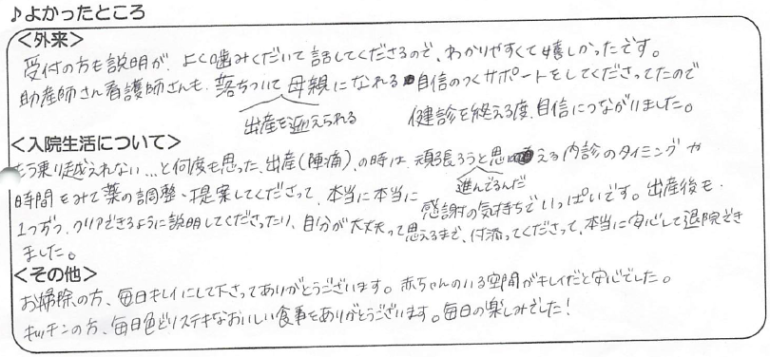 ♪よかったところ
<外来>
受付の方も説明が、よく噛みくだいて話してくださるので、わかりやすくて嬉しかったです。
助産師さん看護師さんも、落ちついて母親になれる自信のつくサポートをしてくださってたので
出産を迎えられる 健診を終える度、自信につながりました。
<入院生活について>
もう乗り越えれない…と何度も思った、出産(陣痛)、の時は、頑張ろうと思える内診のタイミングや
進んでるんだ
時間をみて薬の調整・提案してくださって、本当に本当に感謝の気持ちでいっぱいです。出産後も、
1つずつ、クリアできるように説明してくださったり、自分が大丈夫って思えるまで、付添ってくださって、本当に安心して退院でき
ました。
<その他>
お掃除の方、毎日キレイにして下さってありがとうございます。赤ちゃんのいる空間がキレイだと安心でした。
キッチンの方、毎日色どりステキなおいしい食事をありがとうございます。毎日の楽しみでした!